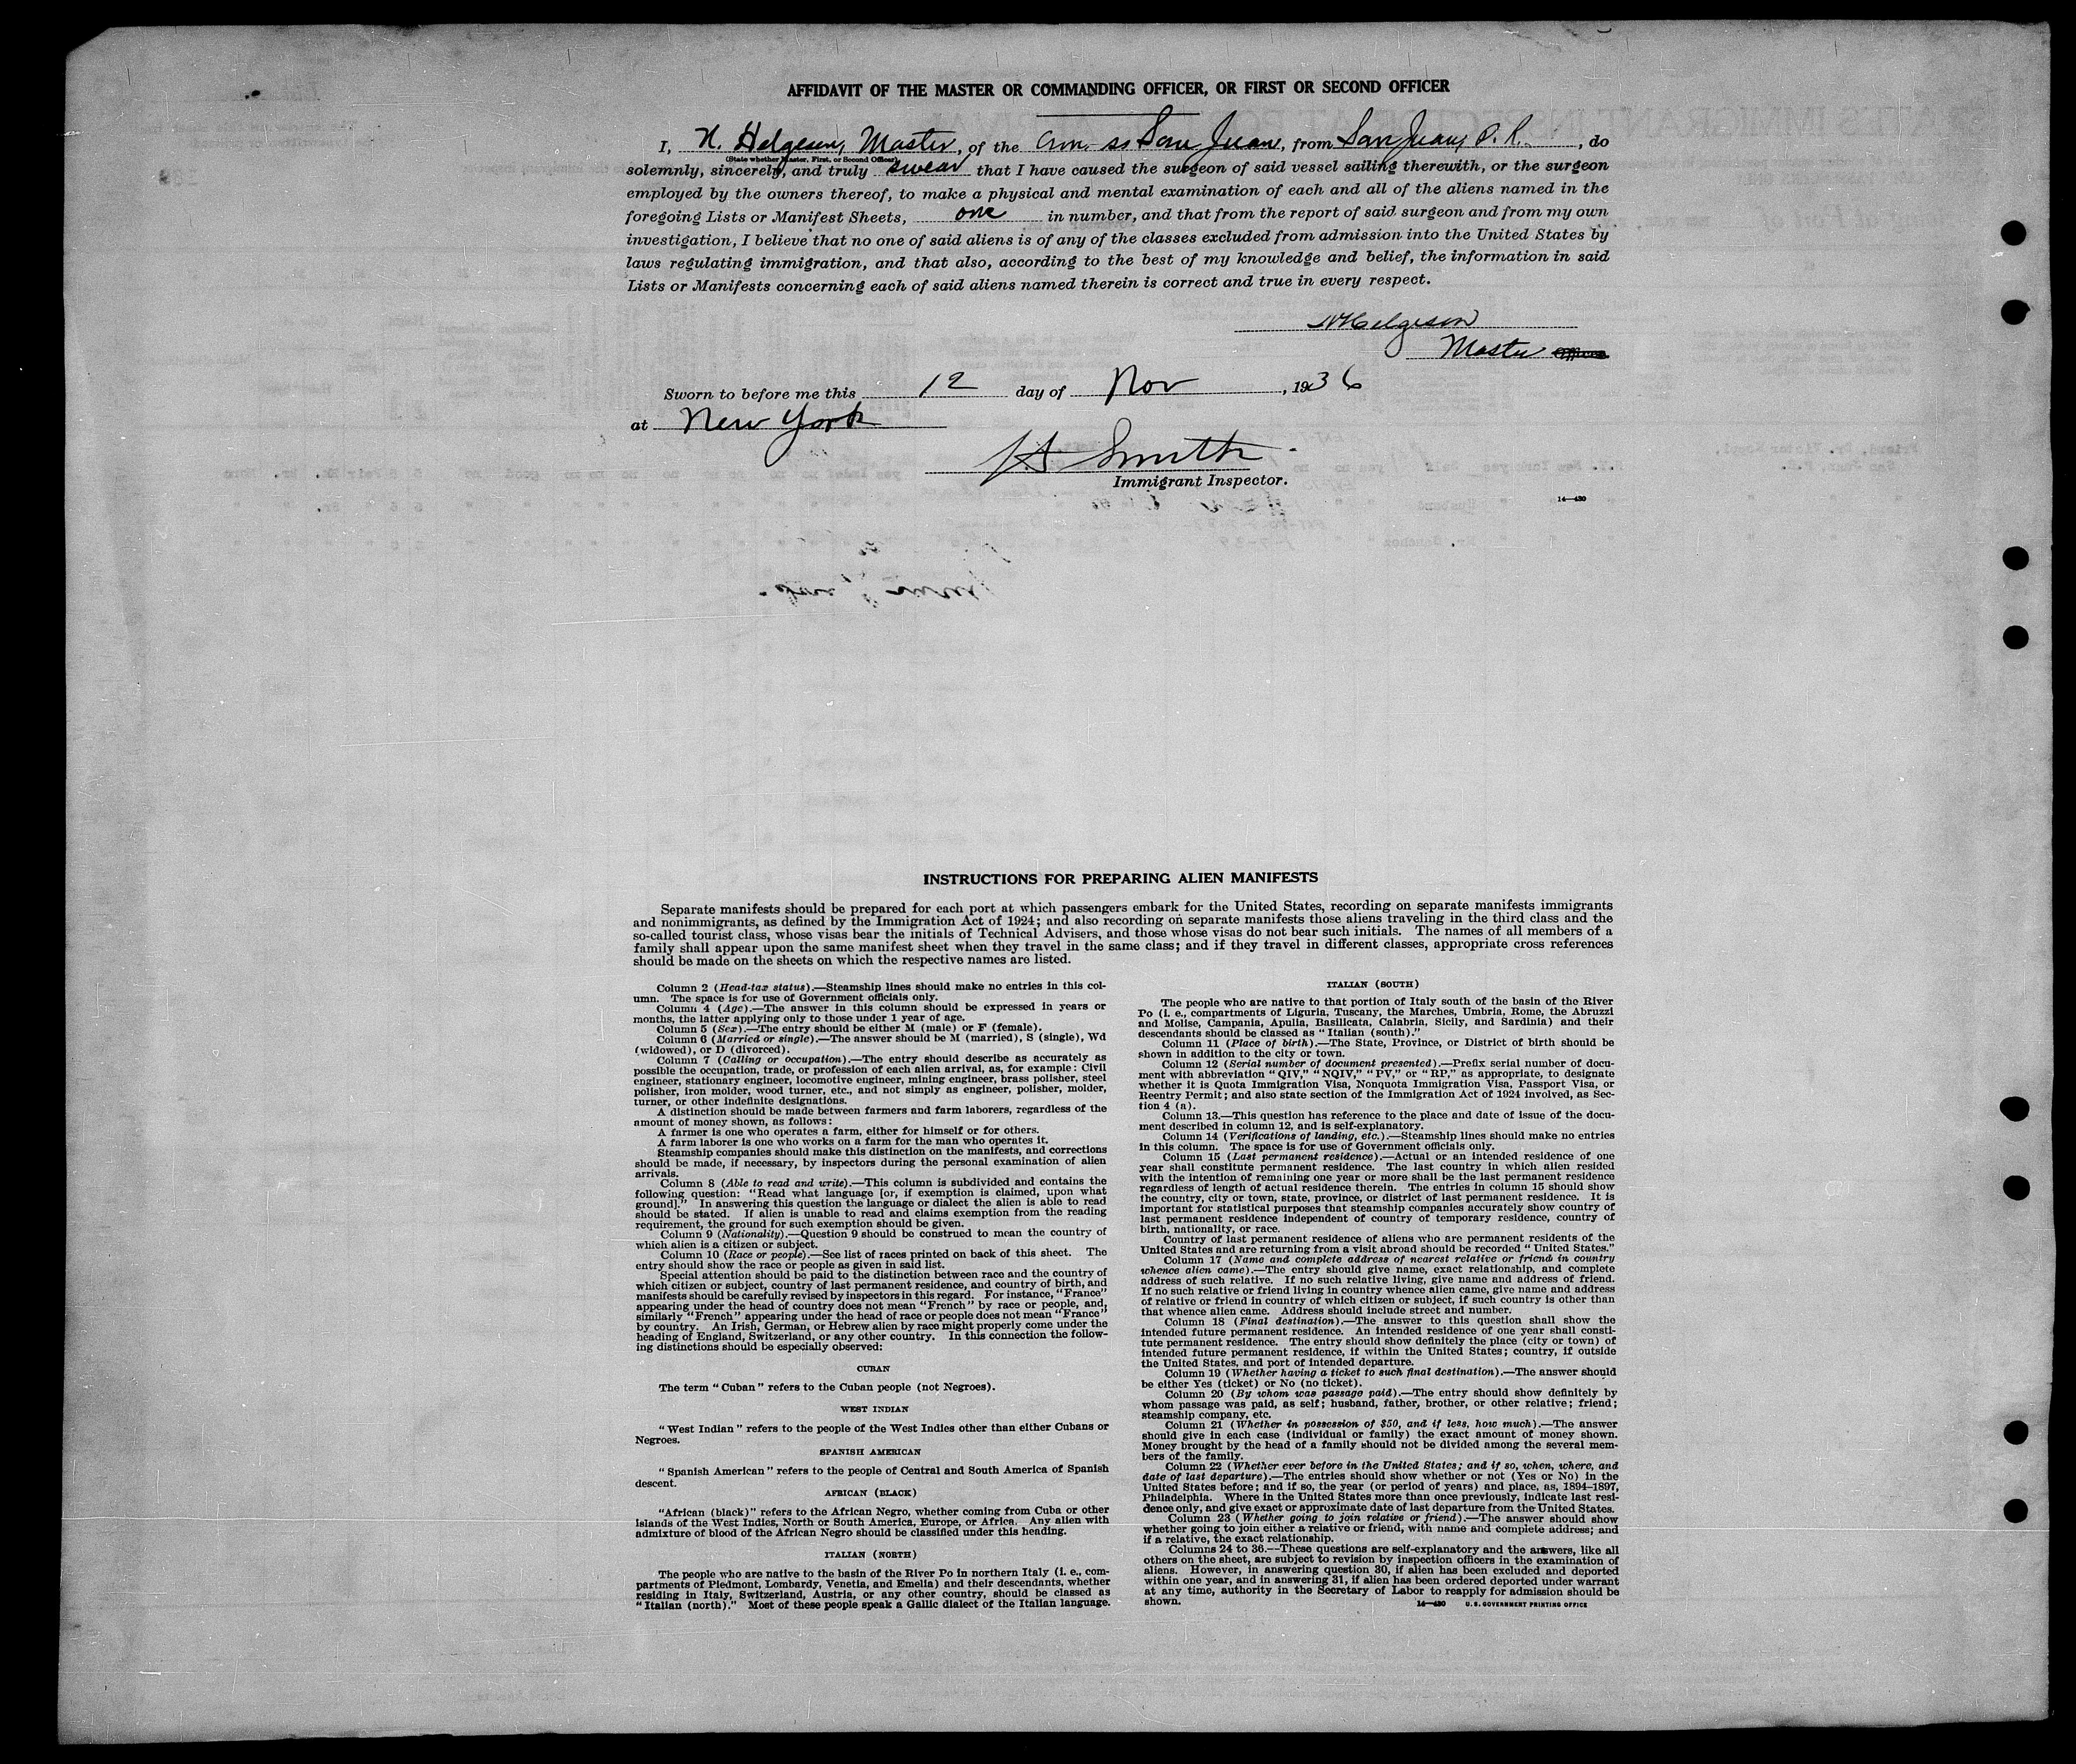 AFFIDAVIT OF THE MASTER OR COMMANDING OFFICER, OR FIRST OR SECOND OFFICER
I, N. Helgesen, Master, of the Am. ss San Juan, from San Juan, P. R., do
(State whether Master, First, or Second Officer)
solemnly, sincerely, and truly swear that I have caused the surgeon of said vessel sailing therewith, or the surgeon
employed by the owners thereof, to make a physical and mental examination of each and all of the aliens named in the
foregoing Lists or Manifest Sheets, one in number, and that from the report of said surgeon and from my own
investigation, I believe that no one of said aliens is of any of the classes excluded from admission into the United States by
laws regulating immigration, and that also, according to the best of my knowledge and belief, the information in said
Lists or Manifests concerning each of said aliens named therein is correct and true in every respect.
NHelgeson
Master Officer
Sworn to before me this 12 day of Nov, 1936
at New York
Smith
Immigrant Inspector.
14—430
INSTRUCTIONS FOR PREPARING ALIEN MANIFESTS
Separate manifests should be prepared for each port at which passengers embark for the United States, recording on separate manifests immigrants
and nonimmigrants, as defined by the Immigration Act of 1924; and also recording on separate manifests those aliens traveling in the third class and the
so-called tourist class, whose visas bear the initials of Technical Advisers, and those whose visas do not bear such initials. The names of all members of a
family shall appear upon the same manifest sheet when they travel in the same class; and if they travel in different classes, appropriate cross references
should be made on the sheets on which the respective names are listed.
Column 2 (Head-tax status).—Steamship lines should make no entries in this col-
umn. The space is for use of Government officials only.
Column 4 (Age).—The answer in this column should be expressed in years or
months, the latter applying only to those under 1 year of age.
Column 5 (Sex).—The entry should be either M (male) or F (female).
Column 6 (Married or single).—The answer should be M (married), S (single), Wd
(widowed), or D (divorced).
Column 7 (Calling or occupation).—The entry should describe as accurately as
possible the occupation, trade, or profession of each alien arrival, as, for example: Civil
engineer, stationary engineer, locomotive engineer, mining engineer, brass polisher, steel
polisher, iron molder, wood turner, etc., and not simply as engineer, polisher, molder,
turner, or other indefinite designations.
A distinction should be made between farmers and farm laborers, regardless of the
amount of money shown, as follows:
A farmer is one who operates a farm, either for himself or for others.
A farm laborer is one who works on a farm for the man who operates it.
Steamship companies should make this distinction on the manifests, and corrections
should be made, if necessary, by inspectors during the personal examination of alien
arrivals.
Column 8 (Able to read and write).—This column is subdivided and contains the
following question: "Read what language [or, if exemption is claimed, upon what
ground]." In answering this question the language or dialect the alien is able to read
should be stated. If alien is unable to read and claims exemption from the reading
requirement, the ground for such exemption should be given.
Column 9 (Nationality).—Question 9 should be construed to mean the country of
which alien is a citizen or subject.
Column 10 (Race or people).—See list of races printed on back of this sheet. The
entry should show the race or people as given in said list.
Special attention should be paid to the distinction between race and the country of
which citizen or subject, country of last permanent residence, and country of birth, and
manifests should be carefully revised by inspectors in this regard. For instance, "France"
appearing under the head of country does not mean "French" by race or people, and,
similarly "French" appearing under the head of race or people does not mean "France"
by country. An Irish, German, or Hebrew alien by race might properly come under the
heading of England, Switzerland, or any other country. In this connection the follow-
ing distinctions should be especially observed:
CUBAN
The term "Cuban" refers to the Cuban people (not Negroes).
WEST INDIAN
"West Indian" refers to the people of the West Indies other than either Cubans or
Negroes.
SPANISH AMERICAN
"Spanish American" refers to the people of Central and South America of Spanish
descent.
AFRICAN (BLACK)
"African (black)" refers to the African Negro, whether coming from Cuba or other
islands of the West Indies, North or South America, Europe, or Africa. Any alien with
admixture of blood of the African Negro should be classified under this heading.
ITALIAN (NORTH)
The people who are native to the basin of the River Po in northern Italy (i. e., com-
partments of Piedmont, Lombardy, Venetia, and Emelia) and their descendants, whether
residing in Italy, Switzerland, Austria, or any other country, should be classed as
"Italian (north)." Most of these people speak a Gallic dialect of the Italian language.
ITALIAN (SOUTH)
The people who are native to that portion of Italy south of the basin of the River
Po (i. e., compartments of Liguria, Tuscany, the Marches, Umbria, Rome, the Abruzzi
and Molise, Campania, Apulia, Basilicata, Calabria, Sicily, and Sardinia) and their
descendants should be classed as "Italian (south)."
Column 11 (Place of birth).—The State, Province, or District of birth should be
shown in addition to the city or town.
Column 12 (Serial number of document presented).—Prefix serial number of docu-
ment with abbreviation "QIV," "NQIV," "PV," or "RP," as appropriate, to designate
whether it is Quota Immigration Visa, Nonquota Immigration Visa, Passport Visa, or
Reentry Permit; and also state section of the Immigration Act of 1924 involved, as Sec-
tion 4 (a).
Column 13.—This question has reference to the place and date of issue of the docu-
ment described in column 12, and is self-explanatory.
Column 14 (Verifications of landing, etc.).—Steamship lines should make no entries
in this column. The space is for use of Government officials only.
Column 15 (Last permanent residence).—Actual or an intended residence of one
year shall constitute permanent residence. The last country in which alien resided
with the intention of remaining one year or more shall be the last permanent residence
regardless of length of actual residence therein. The entries in column 15 should show
the country, city or town, state, province, or district of last permanent residence. It is
important for statistical purposes that steamship companies accurately show country of
last permanent residence independent of country of temporary residence, country of
birth, nationality, or race.
Country of last permanent residence of aliens who are permanent residents of the
United States and are returning from a visit abroad should be recorded "United States."
Column 17 (Name and complete address of nearest relative or friend in country
whence alien came).—The entry should give name, exact relationship, and complete
address of such relative. If no such relative living, give name and address of friend.
If no such relative or friend living in country whence alien came, give name and address
of relative or friend in country of which citizen or subject, if such country is other than
that whence alien came. Address should include street and number.
Column 18 (Final destination).—The answer to this question shall show the
intended future permanent residence. An intended residence of one year shall consti-
tute permanent residence. The entry should show definitely the place (city or town) of
intended future permanent residence, if within the United States; country, if outside
the United States, and port of intended departure.
Column 19 (Whether having a ticket to such final destination).—The answer should
be either Yes (ticket) or No (no ticket).
Column 20 (By whom was passage paid).—The entry should show definitely by
whom passage was paid, as self; husband, father, brother, or other relative; friend;
steamship company, etc.
Column 21 (Whether in possession of $50, and if less, how much).—The answer
should give in each case (individual or family) the exact amount of money shown.
Money brought by the head of a family should not be divided among the several mem-
bers of the family.
Column 22 (Whether ever before in the United States; and if so, when, where, and
date of last departure).—The entries should show whether or not (Yes or No) in the
United States before; and if so, the year (or period of years) and place, as, 1894–1897,
Philadelphia. Where in the United States more than once previously, indicate last resi-
dence only, and give exact or approximate date of last departure from the United States.
Column 23 (Whether going to join relative or friend).—The answer should show
whether going to join either a relative or friend, with name and complete address; and
if a relative, the exact relationship.
Columns 24 to 36.—These questions are self-explanatory and the answers, like all
others on the sheet, are subject to revision by inspection officers in the examination of
aliens. However, in answering question 30, if alien has been excluded and deported
within one year, and in answering 31, if alien has been ordered deported under warrant
at any time, authority in the Secretary of Labor to reapply for admission should be
shown.
14—430 U. S. GOVERNMENT PRINTING OFFICE